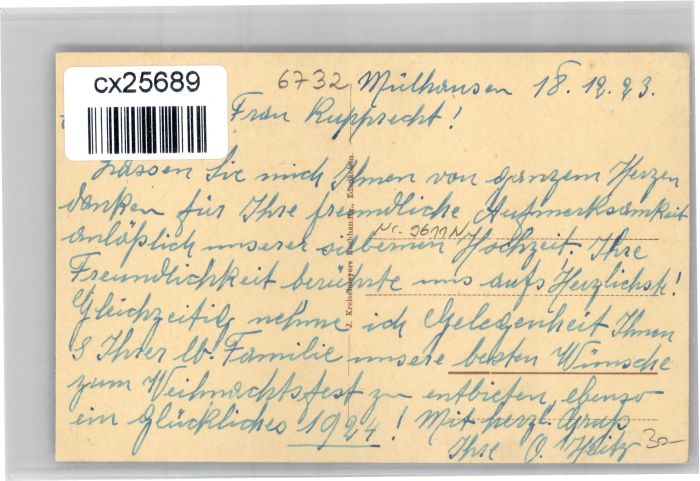 cx25689
6732
Mülhausen 18.12.23.
Frau Rupprecht!
Lassen Sie mich Ihnen von ganzem Herzen
danken für Ihre freundliche Aufmerksamkeit
anläßlich unserer silbernen Hochzeit. Ihre
Nr. 9611N
Freundlichkeit berührte uns aufs Herzlichste!
Gleichzeitig nehme ich Gelegenheit Ihnen
& Ihrer lb. Familie unsere besten Wünsche
zum Weihnachtsfest zu entbieten, ebenso
ein glückliches 1924! Mit herzl. Gruß
Ihre
30-
J. Kreiselmeyers Buchhandlg., Edenkoben.